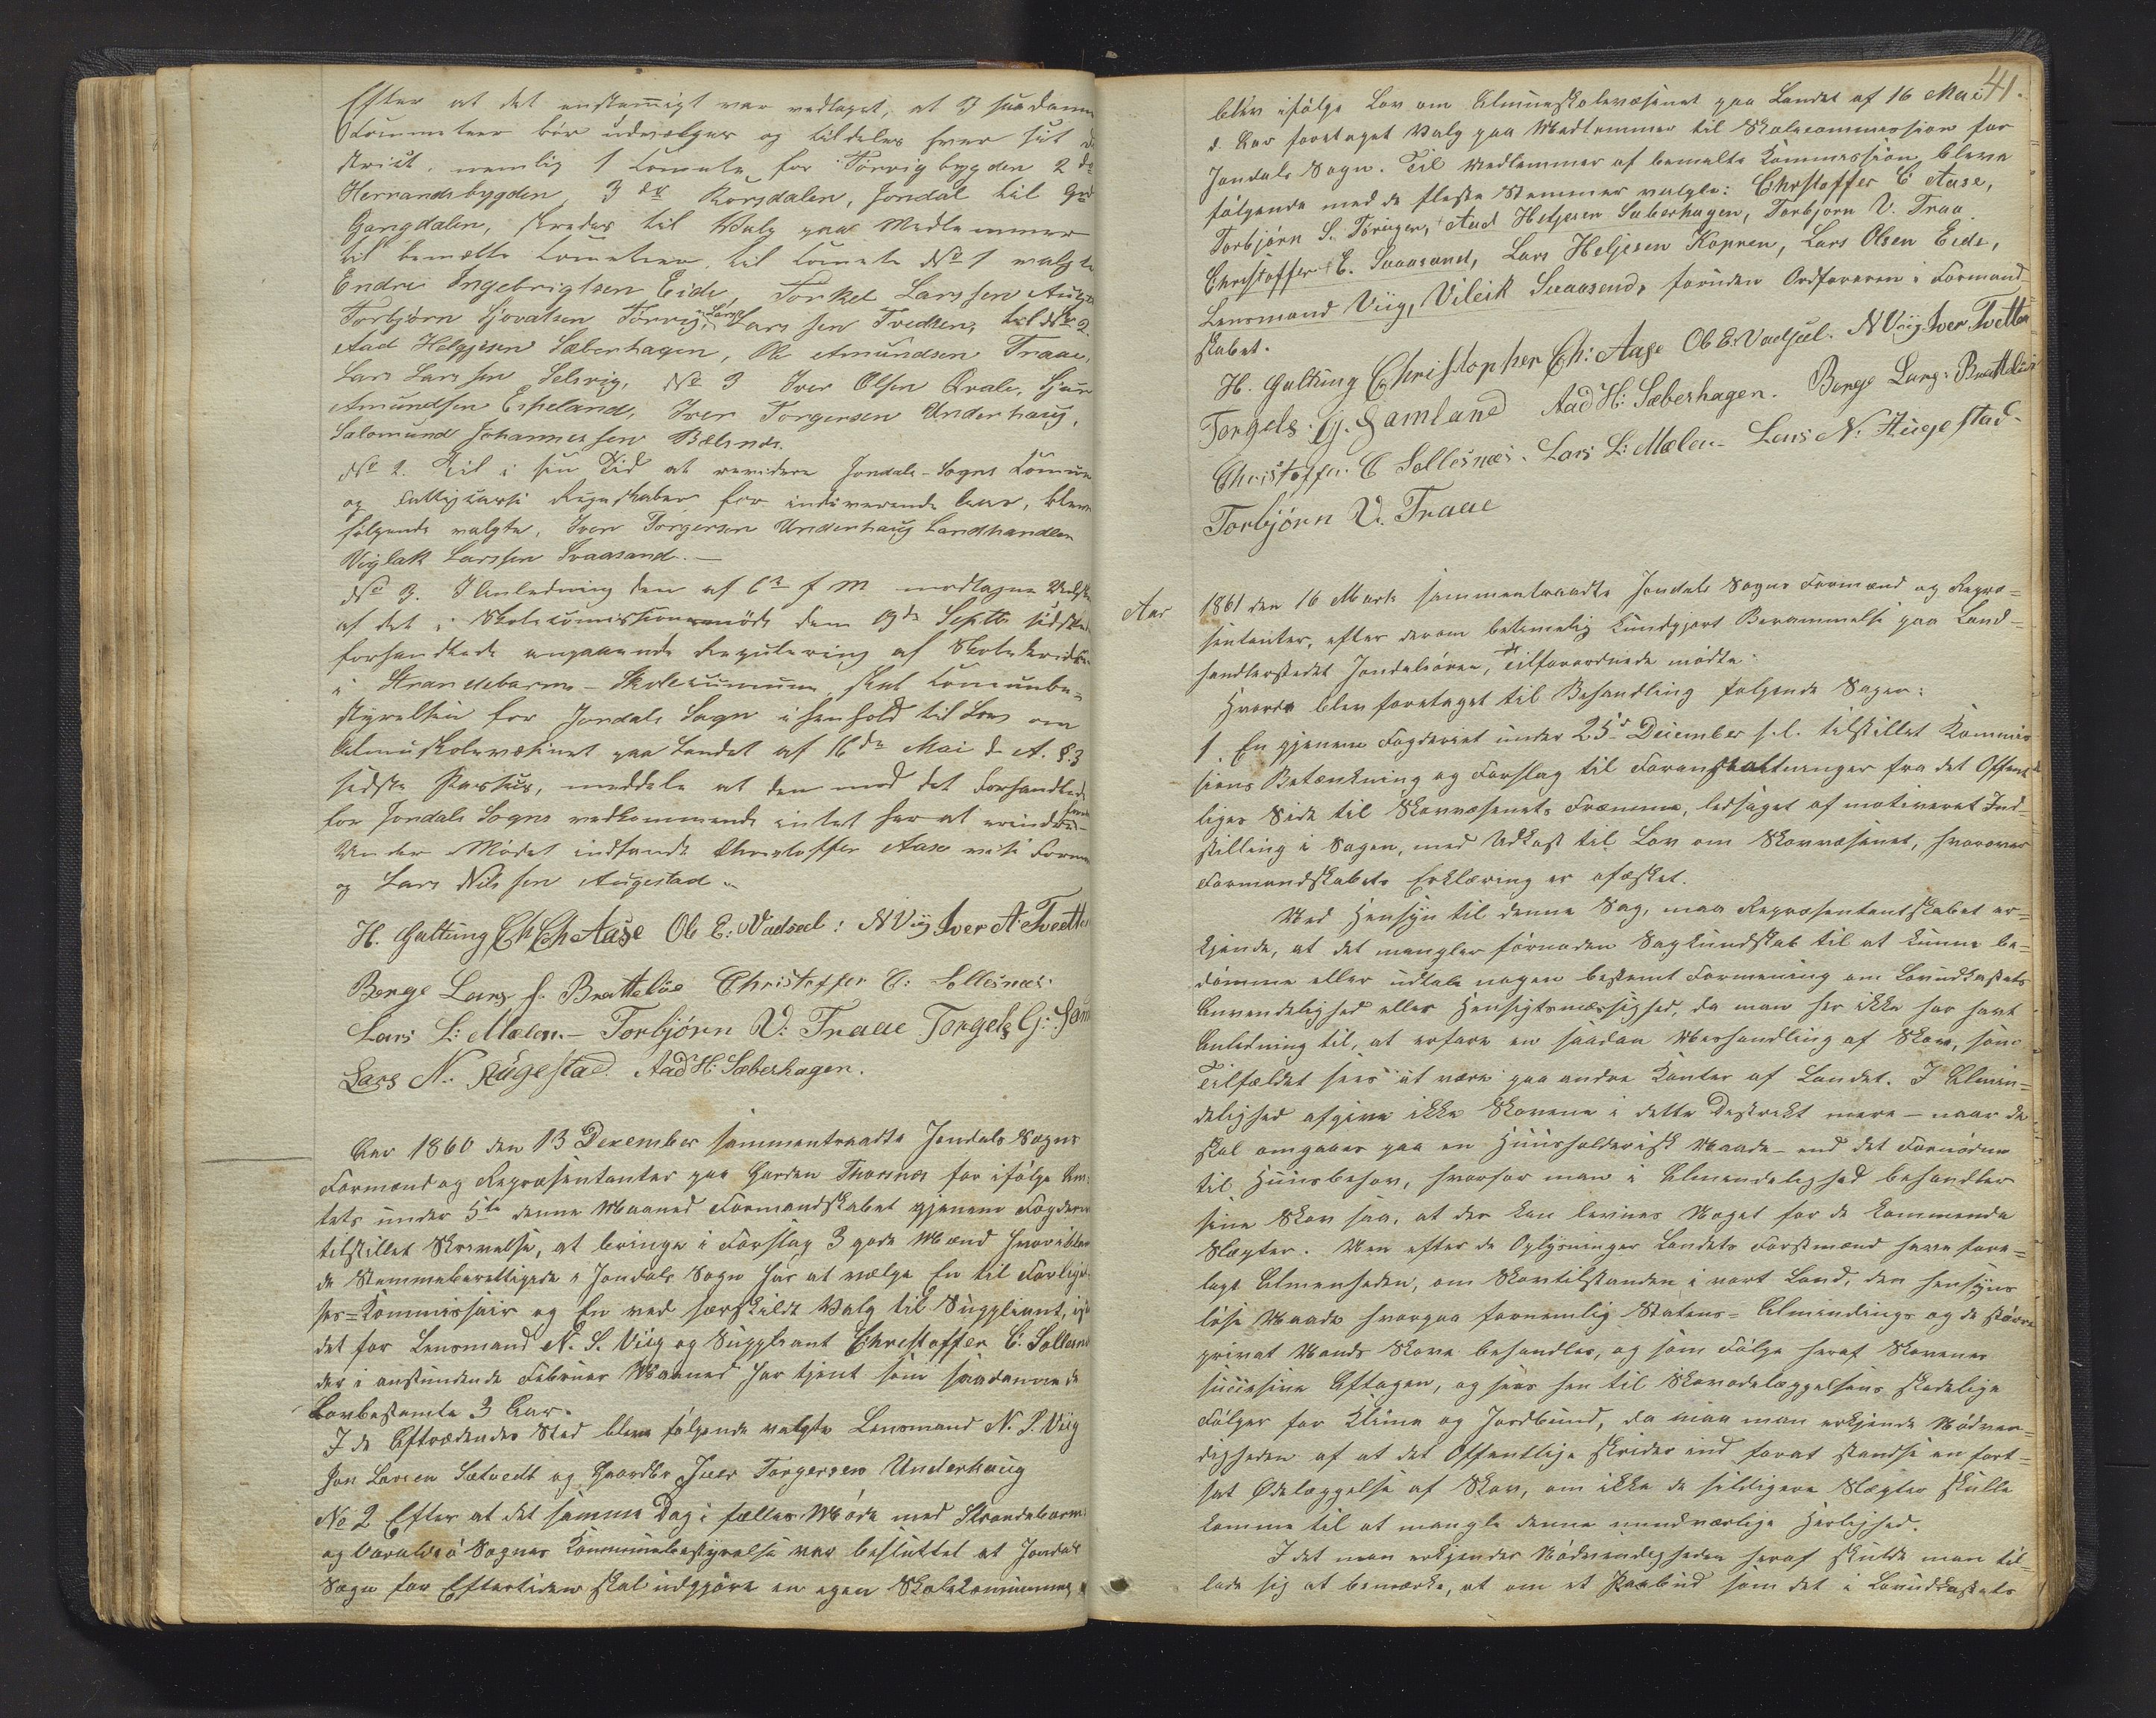 Efter at det enstemigt var vedtaget, at 3 saadanne
Commiteer bör udvælges og tildeles hver sit di
strict, nemlig 1 Comite for Törvigbygden 2 do
Herrandsbygden, 3 do Korsdalen, Jondal til Grd
Gangdalen, skredes til Valg paa Medlemmer
til bemelte Comiteer, til Comite No 1 valgte
Endre Ingebrigtsen Eide, Torkel Larssen Auge
Torbjørn Sjovatsen Törvig, Lars Larssen Tvedten, til No 2
Aad Helgjesen Sæberhagen, Ole Amundsen Traae,
Lars Larssen Selsvig, No 3 Iver Olsen Qvale, Sjur
Amundsen Espeland, Iver Torgersen Underhaug,
Salomund Johannessen Bælsnes.
No 2. Til i sin Tid at revidere Jondals-Sogns Comune
og Fattigcasse Regnskaber for indeværende Aar, bleve
følgende valgte, Iver Torgersen Underhaug Landhandler
Viglak Larssen Svaasand. —
No 3. I Anledning den af 6te f M modtagne Udskr
af det i Skolecomissionsmöde den 9de Septbr sidstl
forhandlede angaaende Regulering af Skolekredse
i Strandebarms-Skolecomune, skal Comunbe-
styrelsen for Jondals Sogn i henhold til Lov om
Almuskolevæsenet paa Landet af 16de Mai d. A. §.3
sidste Passus, meddele at den mod det Forhandlede
for Jondals Sogns vedkommende intet har at erindre
Under Mödet indfandt Christoffer Aase vise Form
og Lars Nilssen Augestad.
H. Galtung Ch Ch Aase Ole E: Vadsel: N Viig Iver A. Tvedte
Berge Lars s. Bratteböe Christoffer C: Sollesnæs.
Lars L: Mælen. – Torbjörn V: Traae Torgels G: Sam
Lars N. Augestad. Aad H: Sæberhagen.
Aar 1860 den 13 Dezember sammentraadte Jondals Sogns
Formænd og Repræsentanter paa Garden Thorsnæs for ifölge Am
tets under 5te denne Maaned Formandskabet gjenem Fogderiet
tilstillet Skrivelse, at bringe i Forslag 3 gode Mænd hvoriblan
de Stemmeberettigede i Jondals Sogn har at vælge En til Forligel
ses-Kommissair og En ved særskildt Valg til Suppleant, i
det for Lensmand N. S. Viig og Suppleant Christoffer C. Sollesnæ
der i anstundende Februar Maaned har tjent som saadanne de
Lovbestemte 3 Aar.
I de Aftrædendes Sted bleve fölgende valgte Lensmand N. S. Viig
Jon Larsen Sætvedt og Gaardbr Iver Torgersen Underhaug
No 2 Efter at det samme Dag i fælles Möde med Strandebarms
og Varaldsö Sognes Kommunebestyrelse var besluttet at Jondals
Sogn for Eftertiden skal udgjöre en egen Skolekommune,
41.
blev ifölge Lov om Almueskolevæsenet paa Landet af 16 Mai
d. Aar foretaget Valg paa Medlemmer til Skolecommission for
Jondals Sogn. Til Medlemmer af bemelte Kommission bleve
fölgende med de fleste Stemmer valgte: Christoffer C Aase,
Torbjörn S. Törvigen, Aad Helgesen Sæberhagen, Torbjörn V. Traa
Christoffer E. Svaasand, Lars Heljesen Kopren, Lars Olsen Eide,
Lensmand Viig, Vileik Svaasend, foruden Ordföreren i Formand
skabet.
H. Galtung Christopher Ch: Aase Ole E: Vadsel. N Viig Iver Tvetten
Torgels. G. Samland Aad H: Sæberhagen. Berge Lars: Bratteböe
Christoffer C Sollesnæs. Lars L: Mælen – Lars N: Augestad.
Torbjörn V. Traae
Aar 1861 den 16 Marts sammentraadte Jondals Sogns Formænd og Repræ-
sentanter, efter derom betimelig kundgjort Berammelse paa Land-
handlerstedet Jondalsören, Tilforordnede mödte
Hvorda blev foretaget til Behandling fölgende Sager:
1. En gjenem Fogderiet under 25de December s. l. tilstillet Kommis
sions Betænkning og Forslag til Foranstaltninger fra det Offent
liges Side til Skovvæsenets Fremme, ledsaget af motiveret Ind-
stilling i Sagen, med Udkast til Lov om Skovvæsenet, hvorover
Formandskabets Erklæring er afæsket.
Med Hensyn til denne Sag, maa Repræsentantskabet er-
kjende, at det mangler fornöden Sagkundskab til at kunne be-
dömme eller udtale nogen bestemt Formening om Lovudkastets
Anvendelighed eller Hensigtsmæssighed, da man her ikke har havt
Anledning til, at erfare en saadan Mishandling af Skov, som
Tilfældet sees at være paa andre Kanter af Landet. I Almin-
delighed afgive ikke Skovene i dette Destrikt mere – naar de
skal omgaaes paa en Huusholderisk Maade – end det Fornödne
til Huusbehov, hvorfor man i Almendelighed behandler
sine Skov saa, at der kan levnes Noget for de kommende
Slægter. Men efter de Oplysninger Landets Forstmænd have fore-
lagt Almenheden, om Skovtilstanden i vort Land, den hensyns
löse Maade hvorpaa fornemlig Statens- Almendings og de större
privat Mands Skove behandles, og som Fölge heraf Skovenes
succesive Aftagen, og sees hen til Skovödelæggelsens skadelige
Fölger for Klima og Jordbund, da maa man erkjende Nödven-
digheden af at det Offentlige skrider ind forat standse en fort-
sat Ödelæggelse af Skov, om ikke de sildigere Slægter skulle
komme til at mangle denne uundværlige Herlighed.
I det man erkjender Nödvendigheden heraf skulde man til-
lade sig at bemærke, at om et Paabud som det i Lovudkastets